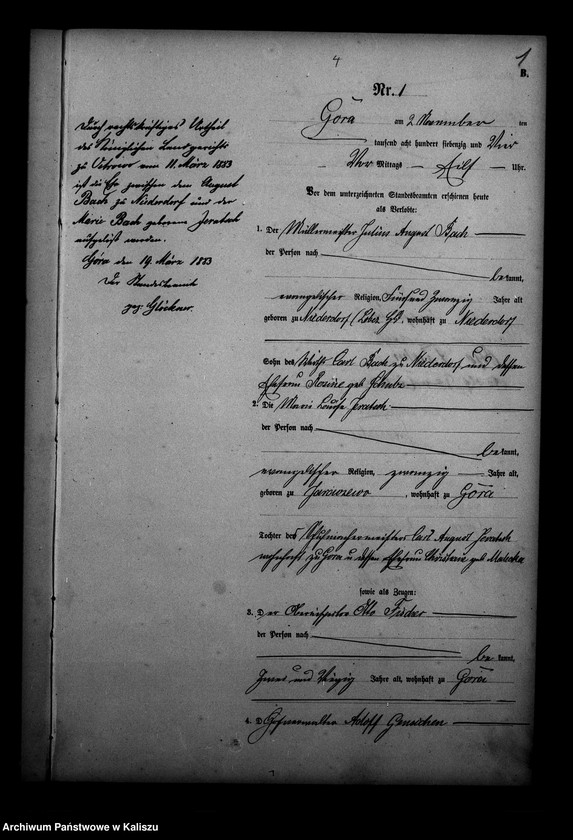 4
1
B.
Nr. 1
Góra am 2 November ten
tausend acht hundert siebenzig und Vier
Vor Mittags Eilf Uhr.
Vor dem unterzeichneten Standesbeamten erschienen heute
als Verlobte:
1. Der Müllermeister Julius August Bach
der Person nach
bekannt,
evangelischer Religion, Fünfund Zwanzig Jahre alt
geboren zu Niederdorf, wohnhaft zu Niederdorf
Sohn des Wirth Carl Bach zu Niederdorf und dessen
Ehefrau Rosine geb Schulz
2. Die Marie Louise Joratsch
der Person nach
bekannt,
evangelischer Religion, zwanzig Jahre alt,
geboren zu Jaroczewo, wohnhaft zu Góra
Tochter des Carl August Joratsch
wohnhaft zu Gora u dessen Ehefrau Christiane geb
sowie als Zeugen:
3. Der Otto Fischer
der Person nach
bekannt,
Zwei und Jahre alt, wohnhaft zu Góra
4. D Adolf
Durch rechtskräftiges Urtheil
des Königlichen Landgerichts
zu Ostrowo vom 11. März 1883
ist die Ehe zwischen dem August
Bach zu Niederdorf und der
Marie Bach geborenen Joratsch
aufgelöst worden.
Góra den 19. März 1883
Der Standesbeamte
gez. Glöckner.
Archiwum Państwowe w Kaliszu